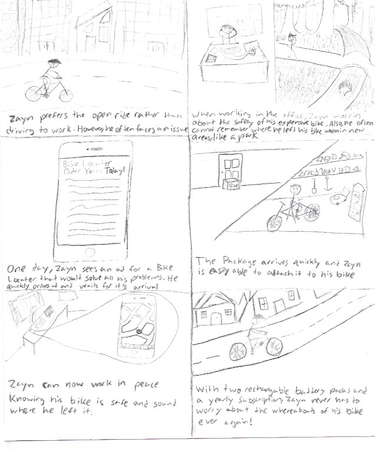 Zayn prefers the open ride rather than
driving to work. However, he often faces an issue
When working in the office, Zayn worries
about the safety of his expensive bike. Also, he often
cannot remember where he left his bike when in new
areas like a park
Bike Locator
Order Yours Today!
One day, Zayn sees an ad for a Bike
Locater that would solve all his problems. He
quickly orders it and waits for it's arrival
The Package arrives quickly and Zayn
is easily able to attach it to his bike
Zayn can now work in peace
Knowing his bike is safe and sound
where he left it.
With two rechargable battery packs and
a yearly subscription, Zayn never has to
worry about the whereabouts of his bike
ever again!